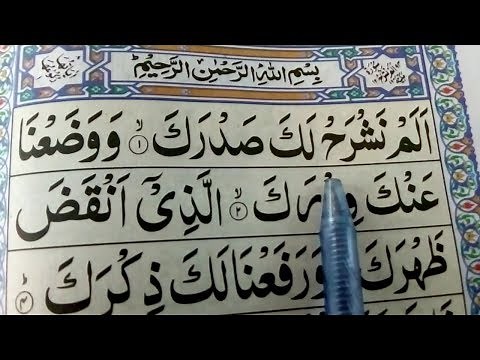 بِسْمِ اللهِ الرَّحْمٰنِ الرَّحِيْمِ
اَلَمْ نَشْرَحْ لَكَ صَدْرَكَ ۙ﴿۱﴾ وَوَضَعْنَا
عَنْكَ وِزْرَكَ ۙ﴿۲﴾ الَّذِيْٓ اَنْقَضَ
ظَهْرَكَ وَرَفَعْنَا لَكَ ذِكْرَكَ ؕ﴿۴﴾